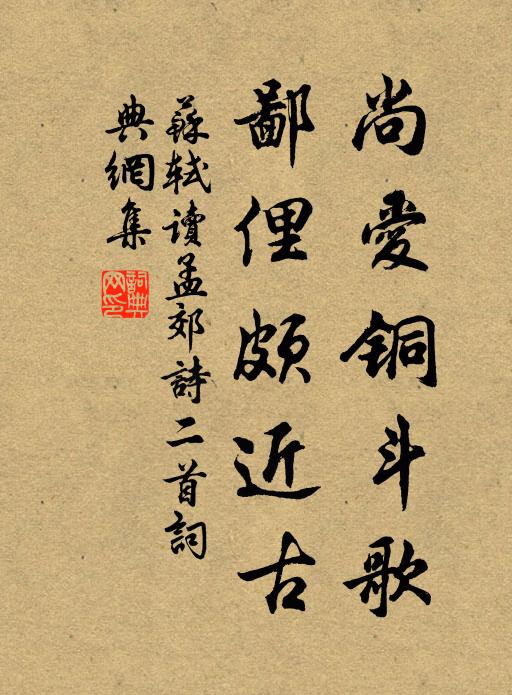 尚愛銅斗歌
鄙俚頗近古
蘇軾讀孟郊詩二首詞
典網集
詞典网印